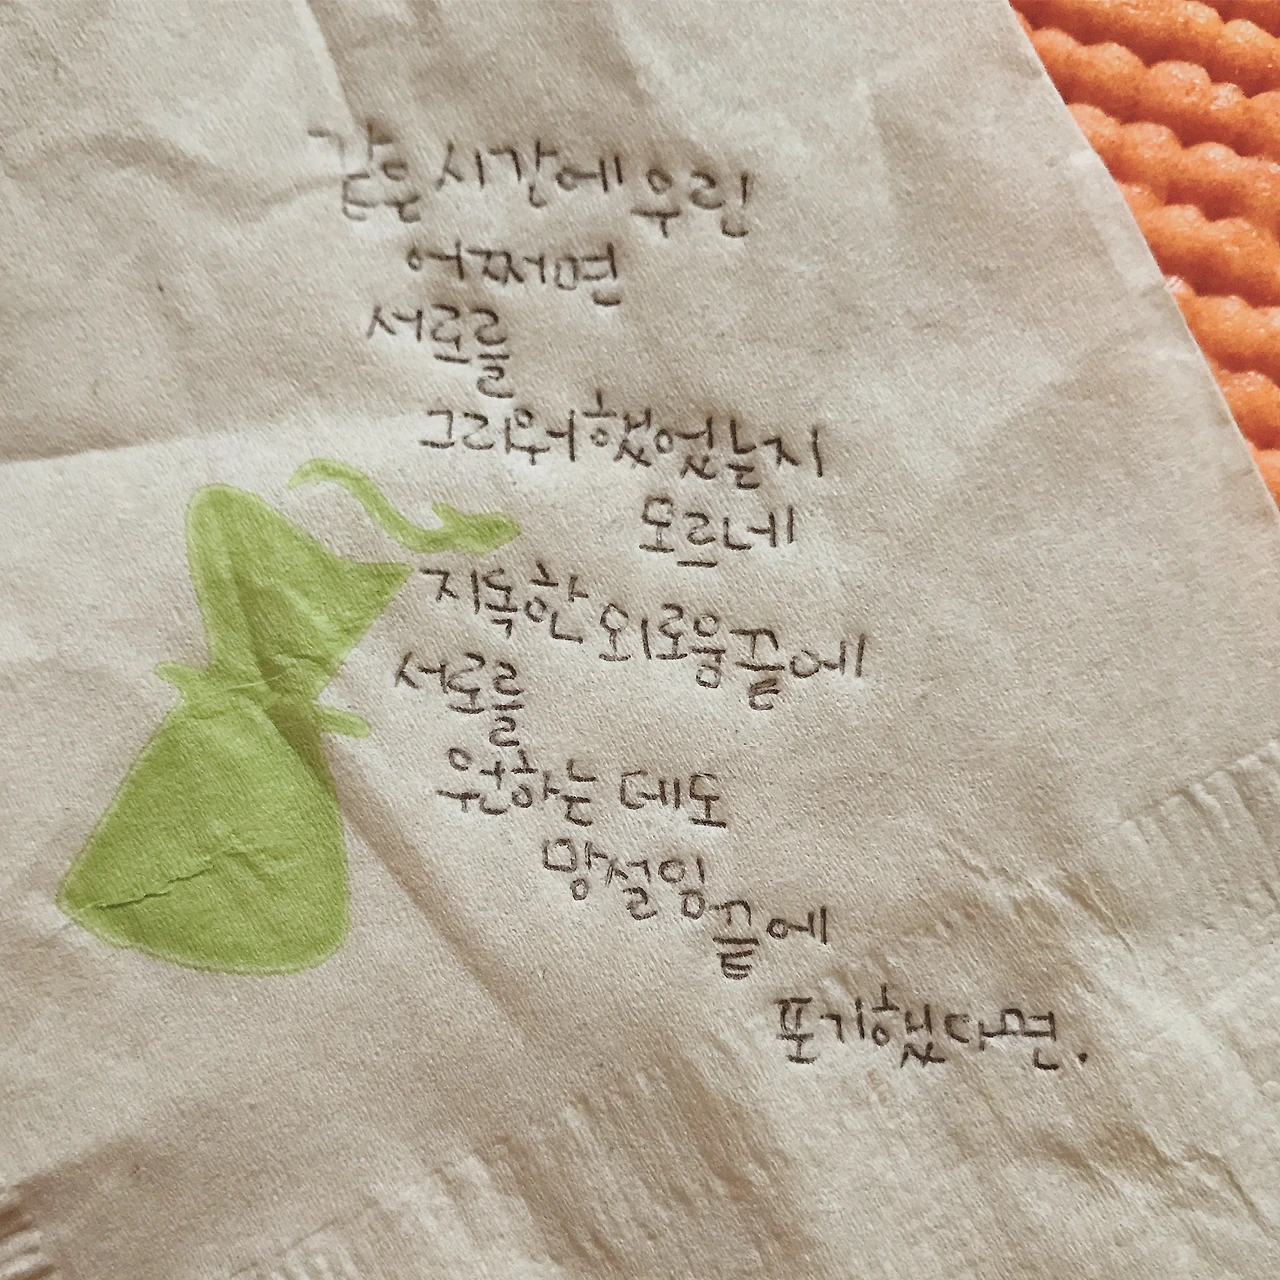 같은 시간에 우린
어쩌면
서로를
그리워했었는지
모르네
지독한 외로움 끝에
서로를
원하는 데도
망설임
끝에
포기했다면.